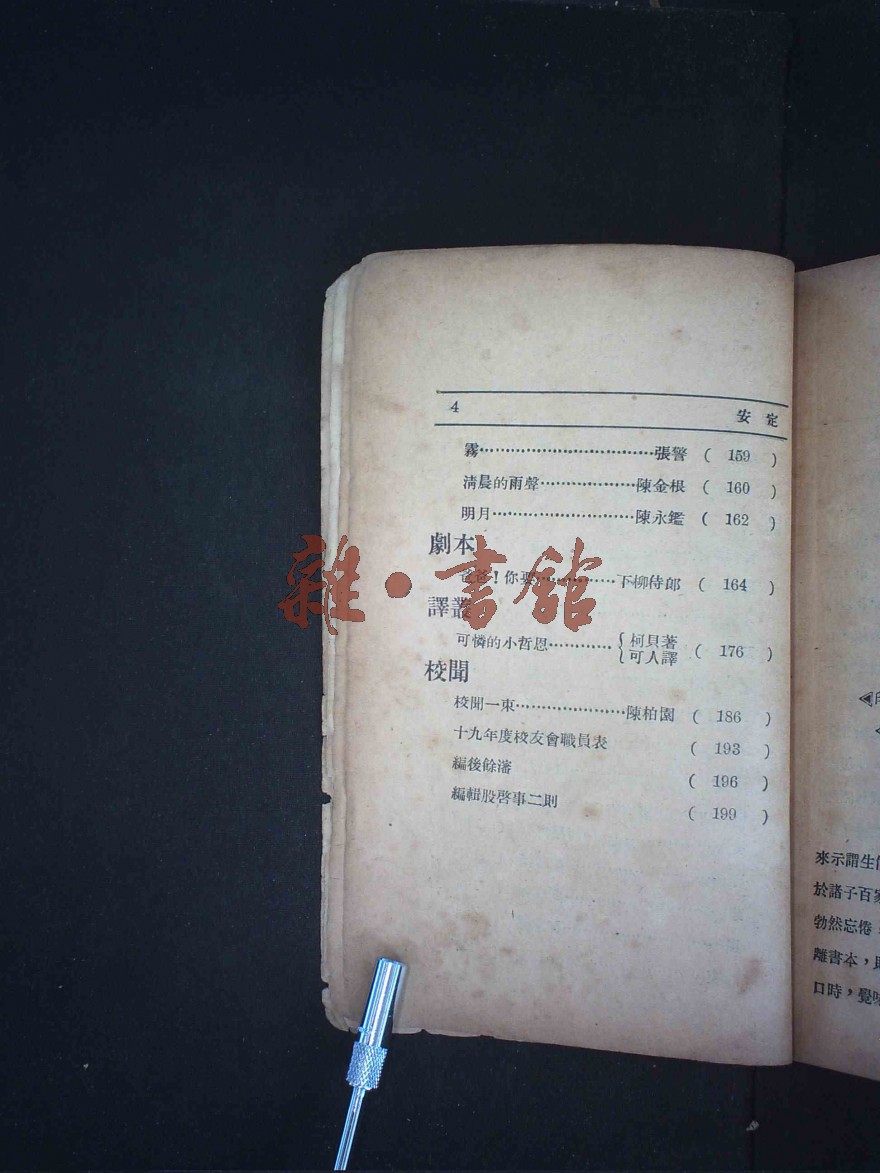 4 安定
霧……………………………張警 ( 159 )
清晨的雨聲………………陳金根 ( 160 )
明月………………………陳永鑑 ( 162 )
劇本
爸爸！你要……………下柳侍郎 ( 164 )
譯叢
可憐的小哲恩…………{柯貝著
可人譯 ( 176 )
校聞
校聞一束…………………陳柏園 ( 186 )
十九年度校友會職員表 ( 193 )
編後餘瀋 ( 196 )
編輯股啓事二則 ( 199 )
雜·書館
來示謂生
於諸子百家
勃然忘倦
離書本，
口時，覺